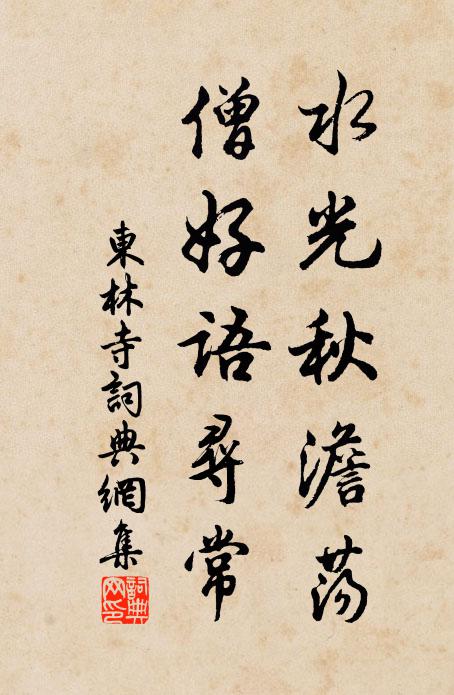 水光秋澹荡
僧好語尋常
東林寺詞典網集
詞典網印